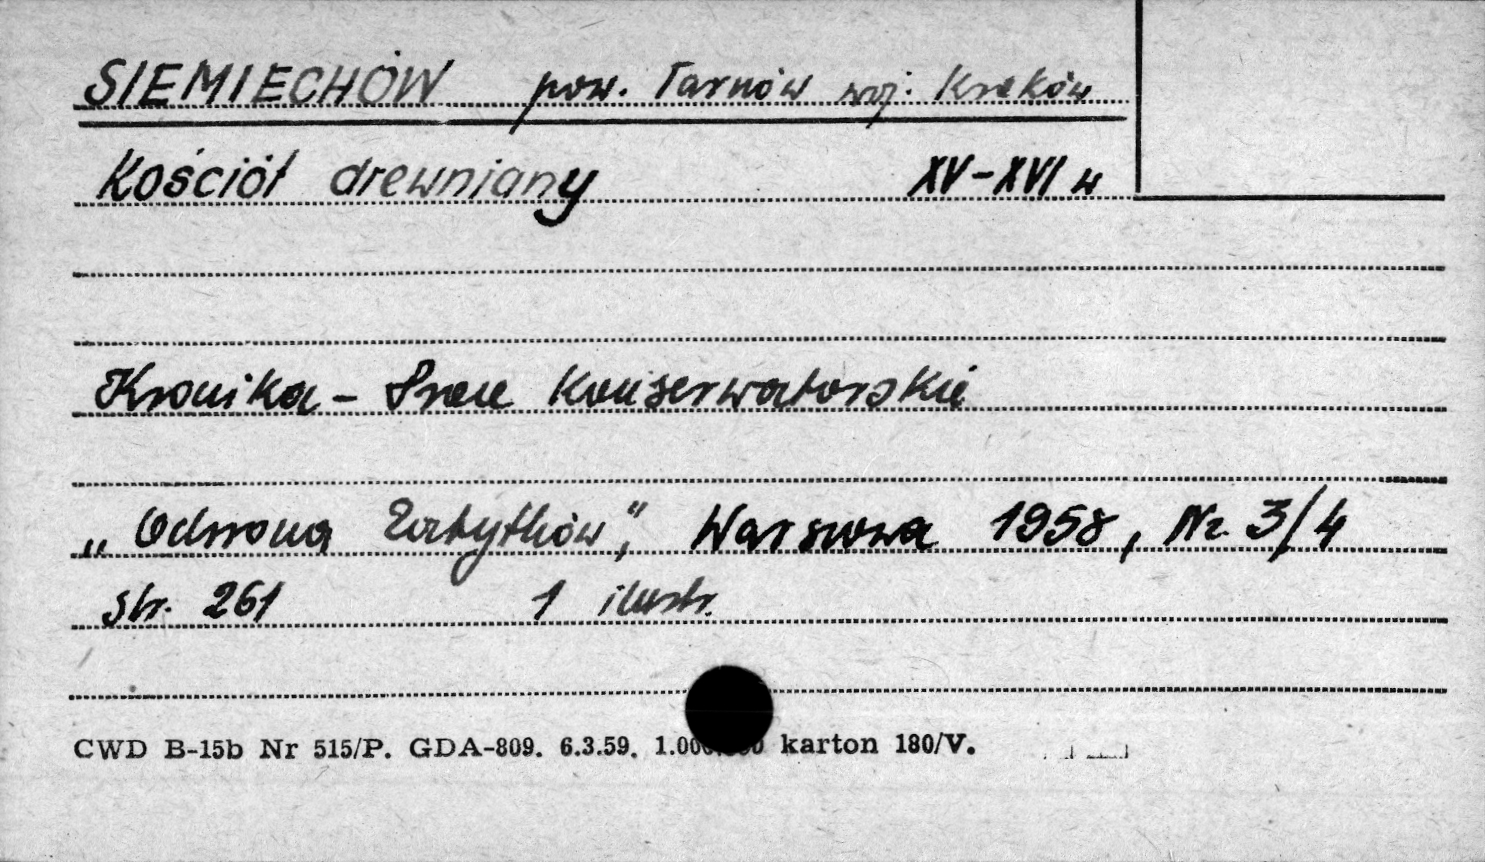 SIEMIECHÓW pow. Tarnów woj. Kraków
Kościół drewniany XV-XVI w
Kronika - Prace Konserwatorskie
„Ochrona Zabytków", Warszawa 1958, Nr. 3/4
str. 261 1 ilustr.
CWD B-15b Nr 515/P. GDA-809. 6.3.59. karton 180/V.